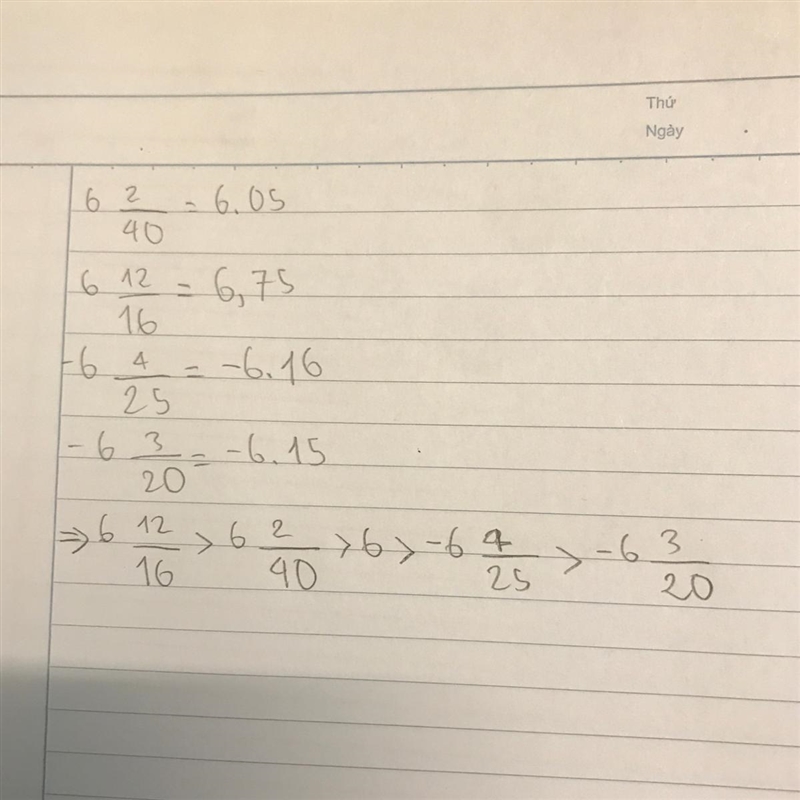 Thứ
Ngày
6 2/40 = 6.05
6 12/16 = 6,75
-6 4/25 = -6.16
-6 3/20 = -6.15
⇒ 6 12/16 > 6 2/40 > 6 > -6 4/25 > -6 3/20